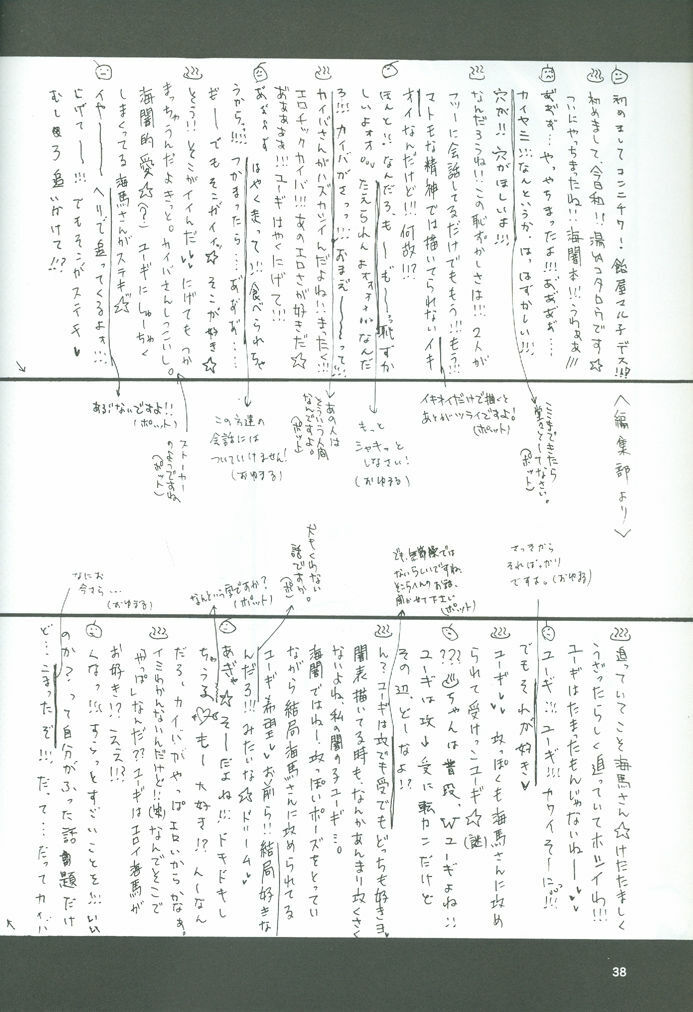 初めましてコンニチワ！飴屋マルチデス!!!
初めまして、今日和!!湯々コタロウです☆
ついにやっちまったね!!海闇本!!!うわぁぁ!!!
あぁぁぁ…やっ、やっちまったよ!!あぁあぁぁ…
カイヤミ!!!なんというか、はっ、はずかしい!!!
穴が!!穴がほしいよ!!!
なんだろうね!!この恥ずかしさは!!!2人が
フツーに会話してるだけでももう!!!もう!!!
マトモな精神では描いてられないイキ
オイなんだけど!!!何故!!!?
ほんと!!!なんだろ、も〜、も〜っ恥ずか
しいよォォ。。。たえられんよォォォォ!!!なんだ
ろ!!!カイバがさっっ!!!おまえ〜〜って!!!
カイバさんがハズカシイんだよね!!!まったく!!!
エロチックカイバ!!!あのエロさが好きだ☆
あぁぁぁぁ!!!ユーギはやくにげて!!!
あぁぁぁ はやくまって!!食べられちゃ
うから…!!!つかまったら…あぁぁぁ…
ぎ〜でもそこがイイッ☆そこが好き☆
そう!!そこがイイんだ♥♥にげてもつか
まっちゃうんだよきっと。カイバさんしつこいし。
海闇的愛☆(?)ユーギにしゅーちゃく
しまくってる海馬さんがステキ☆
イヤ〜〜ヘリで追ってくるよォ!!!
にげて〜!!!でもそこがステキ♥
むしろ追い分けて!!?
〈編集部より〉
ここまできたら
堂々としてなさい。
(ポット)
イキオイだけで描くと
あとがツライですよ!
(ポット)
もっと
シャキッと
しなさい!
(おゆまる)
あの人は
そういう人間
なんですよ。
(ポット)
この方達の
会話には
ついていけません!
(おゆまる)
ストーカーの
ようですね。
(ポット)
あぶないですよ!!
(ポット)
さっきから
そればっかり
ですよ。(おゆまる)
でも、無節操では
ないらしいですね。
そこら へんのお話、
聞かせて下さい
(ポット)
スキくわない
話ですか。
(ポ)
なんという字ですか?
(ポット)
なにを
今さら…
(おゆまる)
追っていてこそ海馬さん☆けたたましく
うざったらしく追っていてホシイわ!!!
ユーギはたまったもんじゃないね〜♥♥
ユーギ!!!ユーギ!!!カワイそ〜にっっ!!!
でもそれが好き♥
ユーギ♥♥攻っぽくも海馬さんに攻め
られて受けっこユーギ☆(謎)
???♨ちゃんは普段、Wユーギよね!!
ユーギは攻→受に転カンだけど
その辺、ど〜なよ!?
ん?ユーギは攻でも受でもどっちも好きョ。
闇表描いてる時も、なんかあんまり攻くさく
ないよね、私の闇の子ユーギ…。
海闇ではねー、攻っぽいポーズをとってい
ながら結局海馬さんに攻められてる
ユーギ希望♥お前ら!!結局好きな
んだろ!!!みたいな☆ドリーム♥
あぎゃ☆そーだよね!!!ドキドキし
ちゃうる♡も〜大好き!?んーなん
だろ、カイバがやっぱエロいからかなぁ。
イミわかんないんだけど!!(笑)なんでそこで
やっぱしなんだ??ユーギはエロイ海馬が
お好き!?こええ!!?
くなっ!!!すらっとすごいことを!!!いい
のか?って自分がふった話題だけ
ど…こまったぞ!!!だって…だってカイバ
38